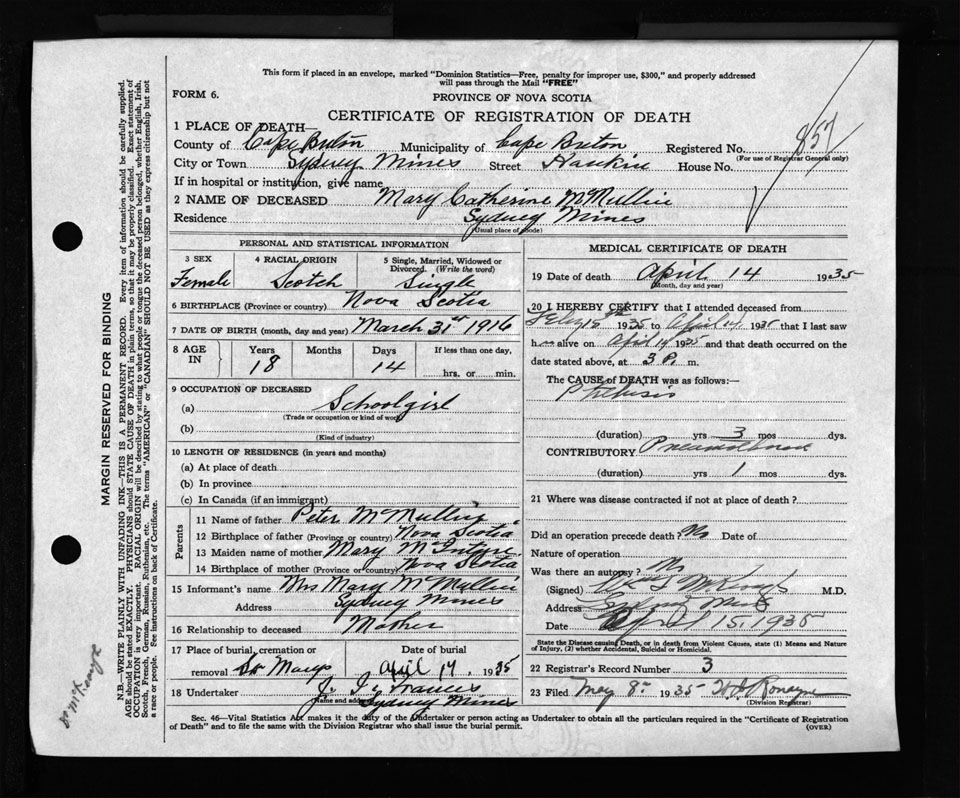 This form if placed in an envelope, marked "Dominion Statistics—Free, penalty for improper use, $300," and properly addressed
will pass through the Mail "FREE"
FORM 6.
PROVINCE OF NOVA SCOTIA
CERTIFICATE OF REGISTRATION OF DEATH
1 PLACE OF DEATH—
County of Cape Breton Municipality of Cape Breton Registered No. 857
(For use of Registrar General only)
City or Town Sydney Mines Street House No.
If in hospital or institution, give name
2 NAME OF DECEASED Mary Catherine McMullin
Residence Sydney Mines
(Usual place of abode)
PERSONAL AND STATISTICAL INFORMATION
3 SEX 4 RACIAL ORIGIN 5 Single, Married, Widowed or
Divorced. (Write the word)
Female Scotch Single
6 BIRTHPLACE (Province or country) Nova Scotia
7 DATE OF BIRTH (month, day and year) March 31st 1916
8 AGE IN Years Months Days If less than one day,
18 14 hrs. or min.
9 OCCUPATION OF DECEASED
(a) Schoolgirl
(Trade or occupation or kind of work)
(b)
(Kind of industry)
10 LENGTH OF RESIDENCE (in years and months)
(a) At place of death
(b) In province
(c) In Canada (if an immigrant)
Parents
11 Name of father Peter McMullin
12 Birthplace of father (Province or country) Nova Scotia
13 Maiden name of mother Mary McIntyre
14 Birthplace of mother (Province or country) Nova Scotia
15 Informant's name Mrs Mary McMullin
Address Sydney Mines
16 Relationship to deceased Mother
17 Place of burial, cremation or Date of burial
removal St Marys April 17, 1935
18 Undertaker J. Francis
Name and address Sydney Mines
MEDICAL CERTIFICATE OF DEATH
19 Date of death April 14 1935
(Month, day and year)
20 I HEREBY CERTIFY that I attended deceased from
Feby 12 1935 to April 14 1935 that I last saw
h alive on April 14 1935 and that death occurred on the
date stated above, at 3 P. m.
The CAUSE of DEATH was as follows:—
Phthisis
(duration) yrs 3 mos dys.
CONTRIBUTORY
(duration) yrs 1 mos dys.
21 Where was disease contracted if not at place of death?
Did an operation precede death? No Date of
Nature of operation
Was there an autopsy? No
(Signed) M.D.
Address Sydney Mines
Date April 15, 1935
State the Disease causing Death, or in death from Violent Causes, State (1) Means and Nature
of Injury, (2) whether Accidental, Suicidal or Homicidal.
22 Registrar's Record Number 3
23 Filed May 8th 1935
(Division Registrar)
Sec. 46—Vital Statistics Act makes it the duty of the Undertaker or person acting as Undertaker to obtain all the particulars required in the "Certificate of Registration
of Death" and to file the same with the Division Registrar who shall issue the burial permit.
(OVER)
MARGIN RESERVED FOR BINDING
N.B.—WRITE PLAINLY WITH UNFADING INK—THIS IS A PERMANENT RECORD. Every item of information should be carefully supplied.
AGE should be stated EXACTLY. PHYSICIANS should STATE CAUSE OF DEATH in plain terms, so that it may be properly classified. Exact statement of
OCCUPATION is very important. RACIAL ORIGIN will be described by stating to what people or tongue the deceased person belonged, whether English, Irish,
Scotch, French, German, Russian, Ruthenian, etc. The terms "AMERICAN" or "CANADIAN" SHOULD NOT BE USED as they express citizenship but not
a race or people. See instructions on back of Certificate.